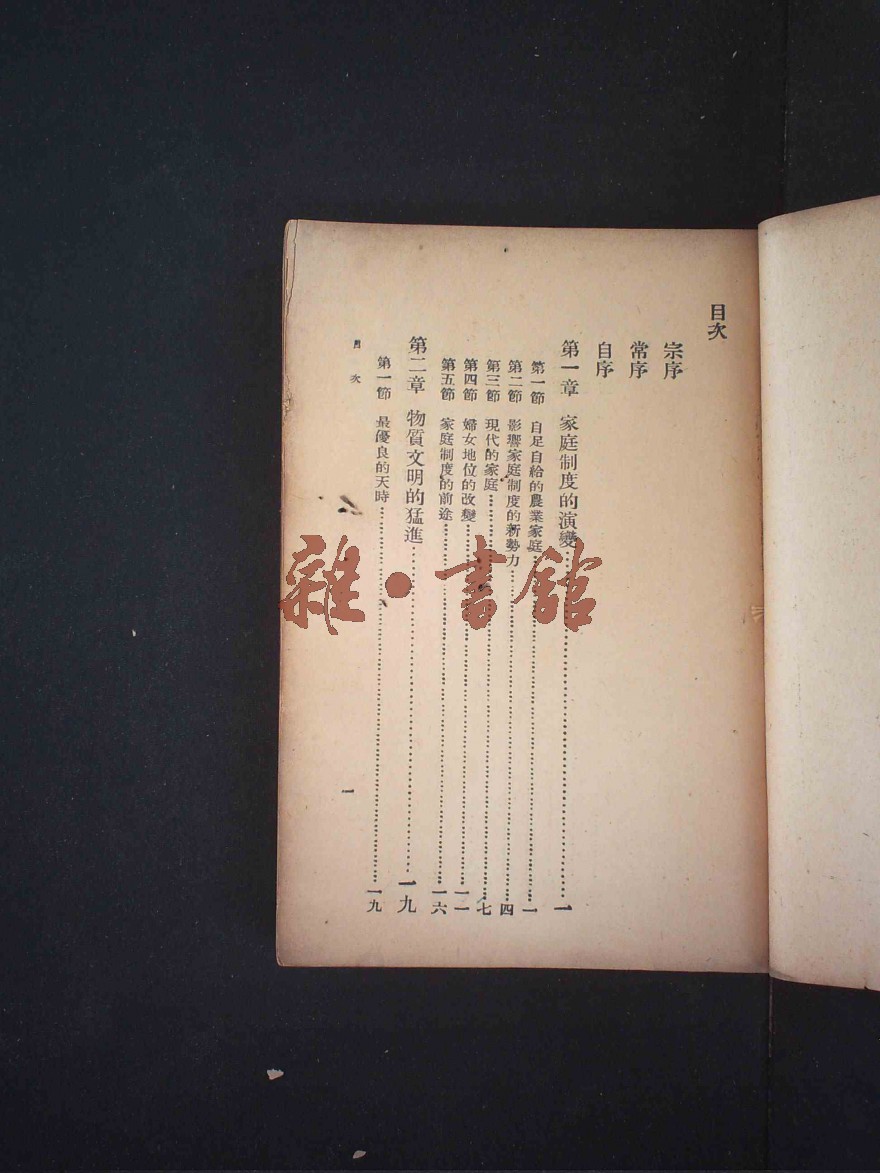 目次
宗序
常序
自序
第一章 家庭制度的演變 一
第一節 自足自給的農業家庭 一
第二節 影響家庭制度的新勢力 四
第三節 現代的家庭 七
第四節 婦女地位的改變 一一
第五節 家庭制度的前途 一六
第二章 物質文明的猛進 一九
第一節 最優良的天時 一九
目次
一
雜·書館